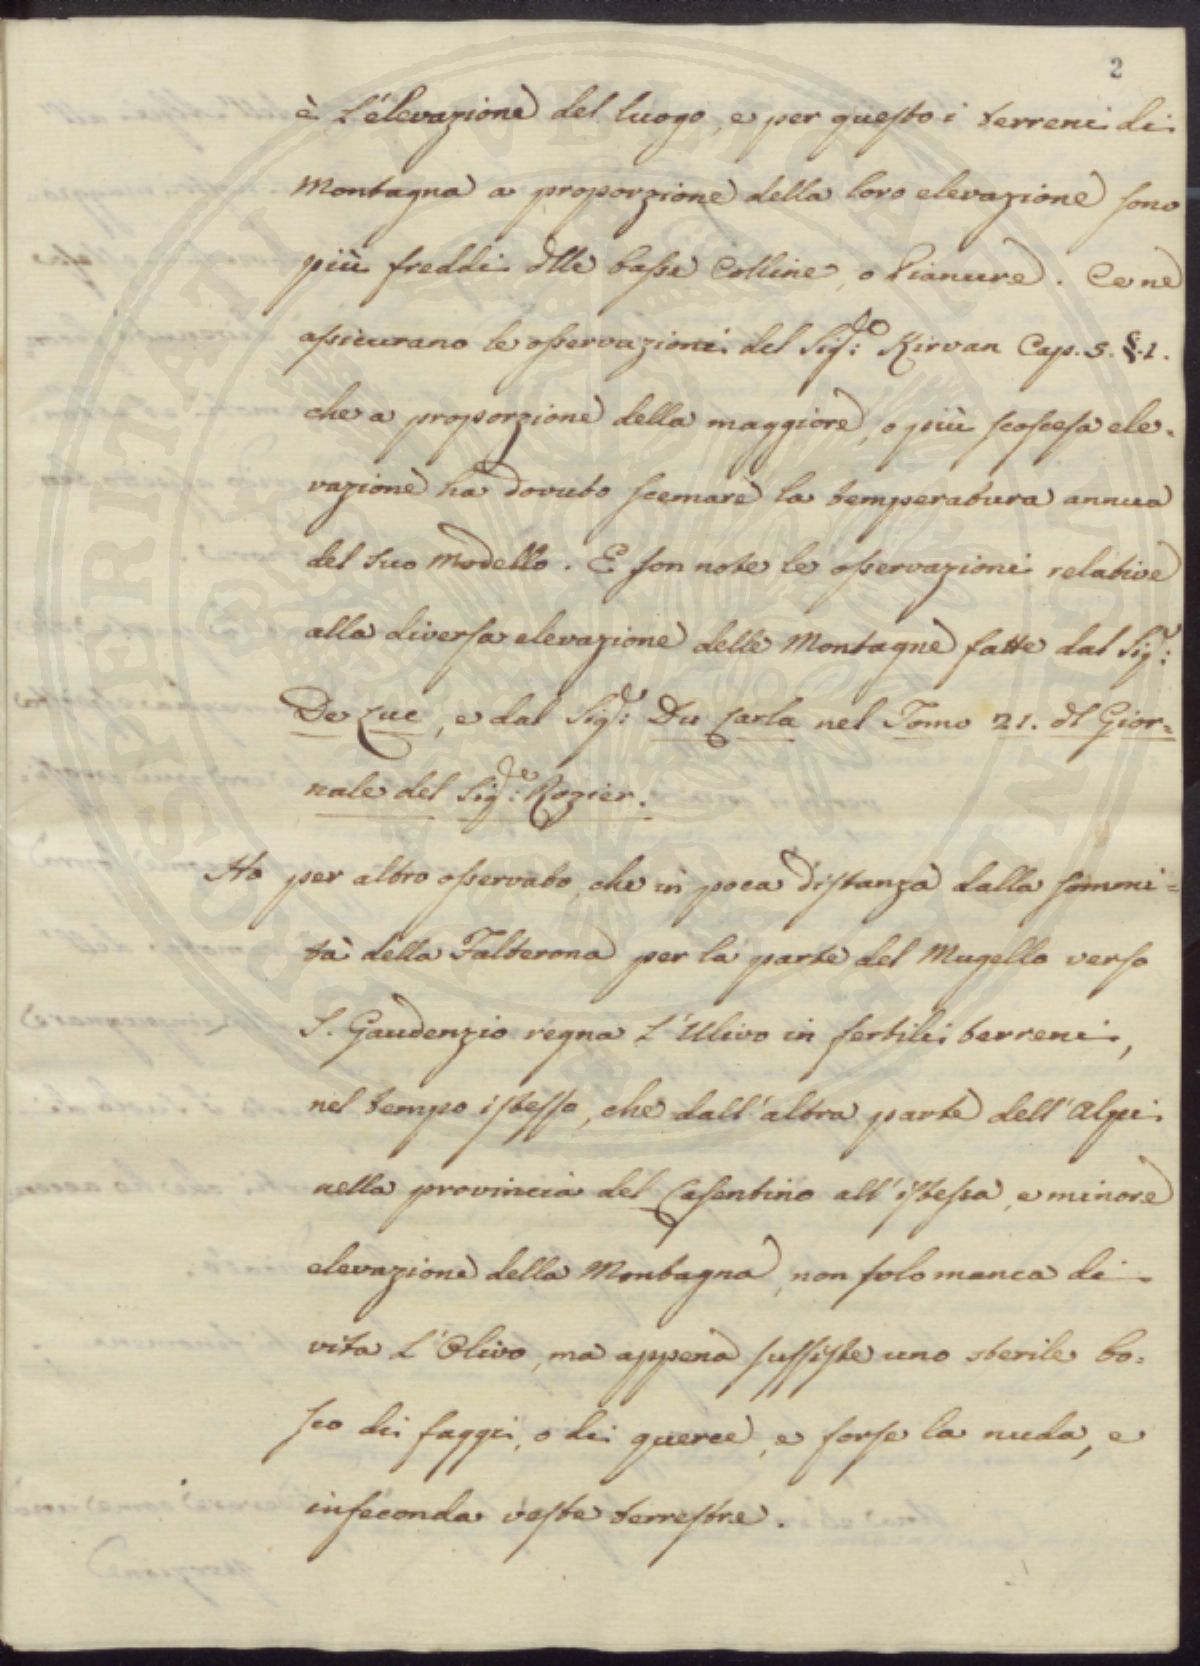 2
è L'elevazione del luogo, e per questo i terreni di
Montagna a proporzione della loro elevazione sono
più freddi dlle basse Colline, o Pianure. Ce ne
assicurano le osservazioni del Sig:e Kirvan Cap. 5. §. 1.
che a proporzione della maggiore, o più scoscesa ele-
vazione ha dovuto scemare la temperatura annua
del suo modello. E son note le osservazioni relative
alla diversa elevazione delle Montagne fatte dal Sig:r
De Luc, e dal Sig:r Du Carla nel Tomo 21. dl Gior-
nale del Sig:re Rozier.
Ho per altro osservato, che in poca distanza dalla sommi-
tà della Falterona per la parte del Mugello verso
S. Gaudenzio regna L'Ulivo in fertili terreni,
nel tempo istesso, che dall'altra parte dell'Alpi
nella provincia del Casentino all'istessa, e minore
elevazione della Montagna, non solo manca di
vita L'Olivo, ma appena sussiste uno sterile bo-
sco di faggi, o di querce, e forse la nuda, e
infeconda veste terrestre.